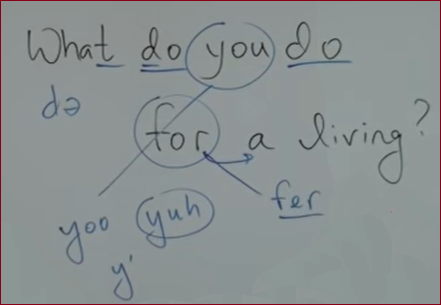 What do you do
də
for a living?
fer
yoo yuh
y'